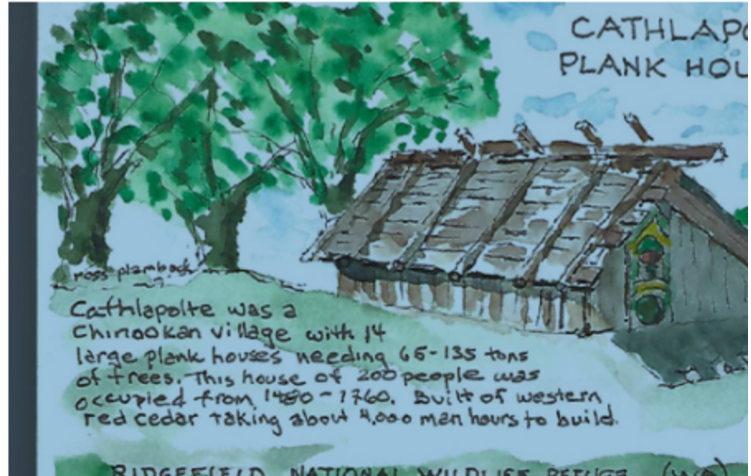 CATHLAPO
PLANK HOU
ross plamback
Cathlapolte was a
Chinookan village with 14
large plank houses needing 65-135 tons
of trees. This house of 200 people was
occupied from 1480-1760. Built of western
red cedar taking about 4,000 man hours to build.
RIDGEFIELD NATIONAL WILDLIFE REFUGE (WA)